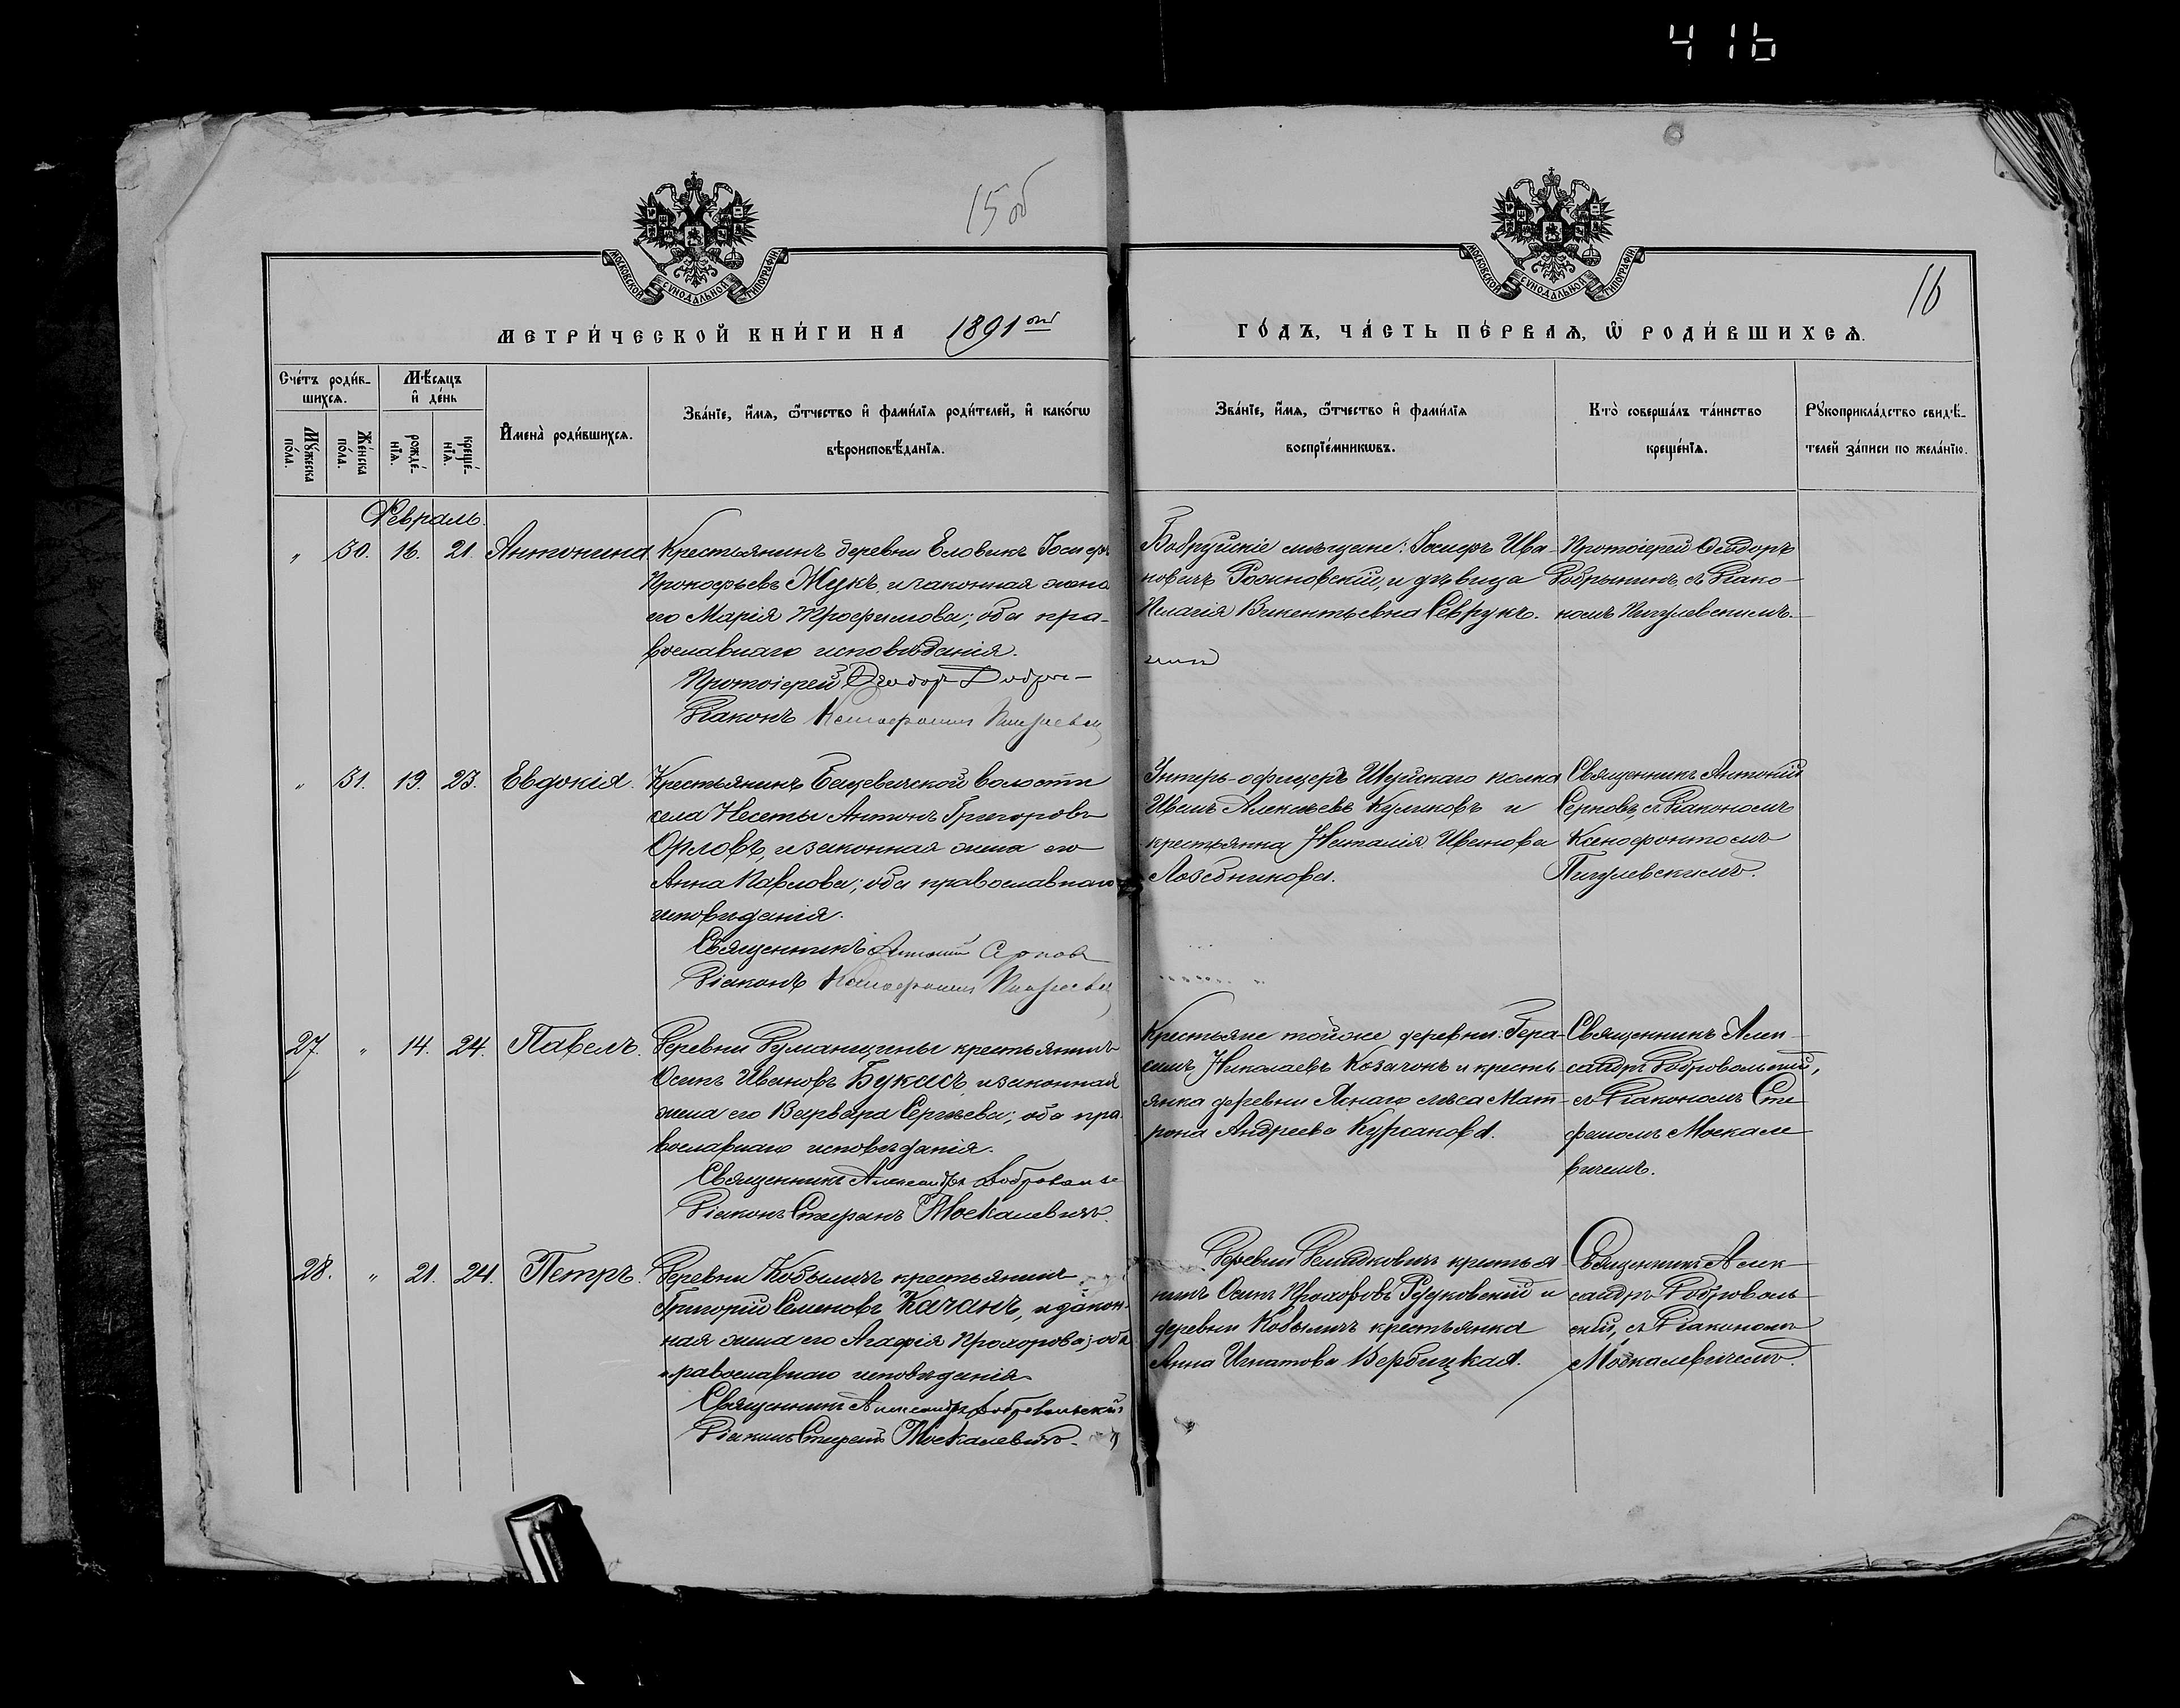 41б
15 об
МОСКОВСКОЙ СѴНОДАЛЬНОЙ ТИПОГРАФІИ
МОСКОВСКОЙ СѴНОДАЛЬНОЙ ТИПОГРАФІИ
16
МЕТРИ́ЧЕСКОЙ КНИ́ГИ НА 1891 ый
ГО́ДЪ, ЧА́СТЬ ПЕ́РВАѦ, Ѿ РОДИ́ВШИХСѦ.
Сче́тъ роди́в-
шихсѧ.
Мꙋ́жеска
по́ла.
Же́нска
по́ла.
Мѣ́сяцъ
и҆ де́нь
рожде́-
нїѧ.
креще́-
нїѧ.
И҆мена̀ роди́вшихсѧ.
Зва́нїе, и҆́мѧ, ѻ҆́тчество и҆ фами́лїѧ роди́телей, и҆ како́гѡ
вѣроисповѣ́данїѧ.
Зва́нїе, и҆́мѧ, ѻ҆́тчество и҆ фами́лїѧ
воспрїе́мникѡвъ.
Кто̀ соверша́лъ та́инство
креще́нїѧ.
Рꙋкоприкла́дство свидѣ́-
телей за́писи по жела́нїю.
Февраль.
" 30. 16. 21. Антонина
Крестьянинъ деревни Еловикъ Іосифъ
Прокофьевъ Жукъ, и законная жена
его Марія Трофимова; оба пра-
вославнаго исповѣданія.
Протоіерей Ѳеодоръ
Діаконъ Ксенофонтъ
Бобруйскіе мѣщане: Іосифъ Ива-
новичъ и дѣвица
Пелагія Викентьевна Севрукъ.
Протоіерей Ѳеодоръ
Добрынинъ, съ Діако-
номъ Пигулевскимъ.
" 31. 19. 23. Евдокія.
Крестьянинъ Бацевичской волости
села Несеты Антонъ Григоровъ
Орловъ, и законная жена его
Анна Павлова; оба православнаго
исповѣданія.
Священникъ Антоній Серновъ
Діаконъ Ксенофонтъ
Унтеръ-офицеръ Шуйскаго полка
Иванъ Алексѣевъ Куликовъ и
крестьянка Наталія Иванова
Лозебникова.
Священникъ Антоній
Серновъ, съ Діакономъ
Ксенофонтомъ
Пигулевскимъ.
27. " 14. 24. Павелъ.
Деревни Думанщины крестьянинъ
Осипъ Ивановъ Букасъ, и законная
жена его Варвара Сергѣева; оба пра-
вославнаго исповѣданія.
Священникъ Александръ
Діаконъ Стефанъ Москалевичъ.
Крестьяне тойже деревни: Гера-
симъ Николаевъ Козачокъ и кресть-
янка деревни Яснаго лѣса Мат-
рона Андреева Курсакова.
Священникъ Алек-
сандръ Добровольскій,
съ Діакономъ Сте-
фаномъ Москале-
вичемъ.
28. " 21. 24. Петръ.
Деревни Кобыличъ крестьянинъ
Григорій Семеновъ Качанъ, и закон-
ная жена его Агафія Прохорова; оба
православнаго исповѣданія.
Священникъ Александръ Добровольскій
Діаконъ Стефанъ Москалевичъ.
Деревни крестья-
нинъ Осипъ Прохоровъ и
деревни Кобыличъ крестьянка
Анна Игнатова Вербицкая.
Священникъ Алек-
сандръ Доброволь-
скій, съ Діакономъ
Москалевичемъ.